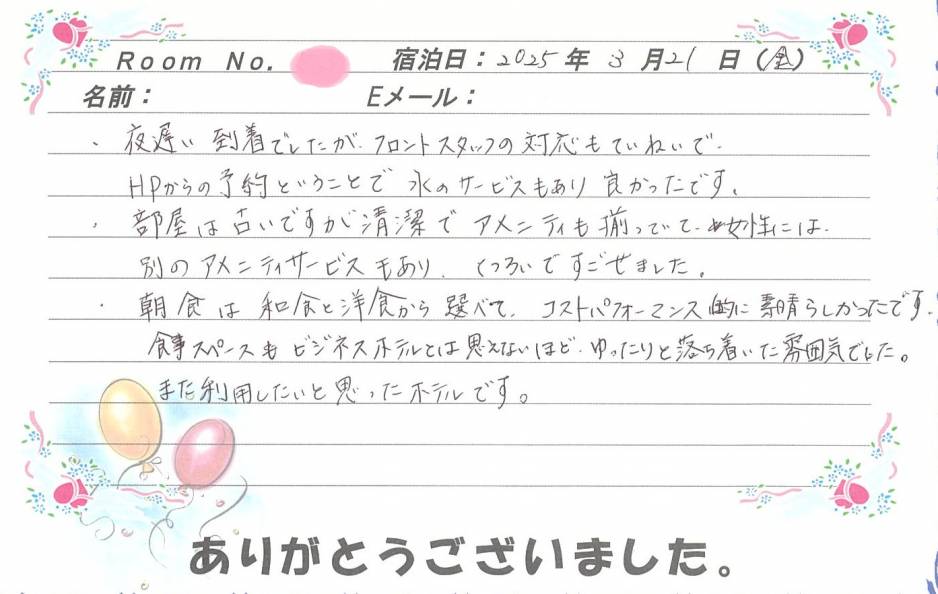 Room No. 宿泊日：2025年3月21日（金）
名前： Eメール：
・夜遅い到着でしたが、フロントスタッフの対応もていねいで、
HPからの予約ということで水のサービスもあり良かったです。
・部屋は古いですが清潔でアメニティも揃っていて、女性には、
別のアメニティサービスもあり、くつろいですごせました。
・朝食は和食と洋食から選べて、コストパフォーマンス的に素晴らしかったです。
食事スペースもビジネスホテルとは思えないほど、ゆったりと落ち着いた雰囲気でした。
また利用したいと思ったホテルです。
ありがとうございました。